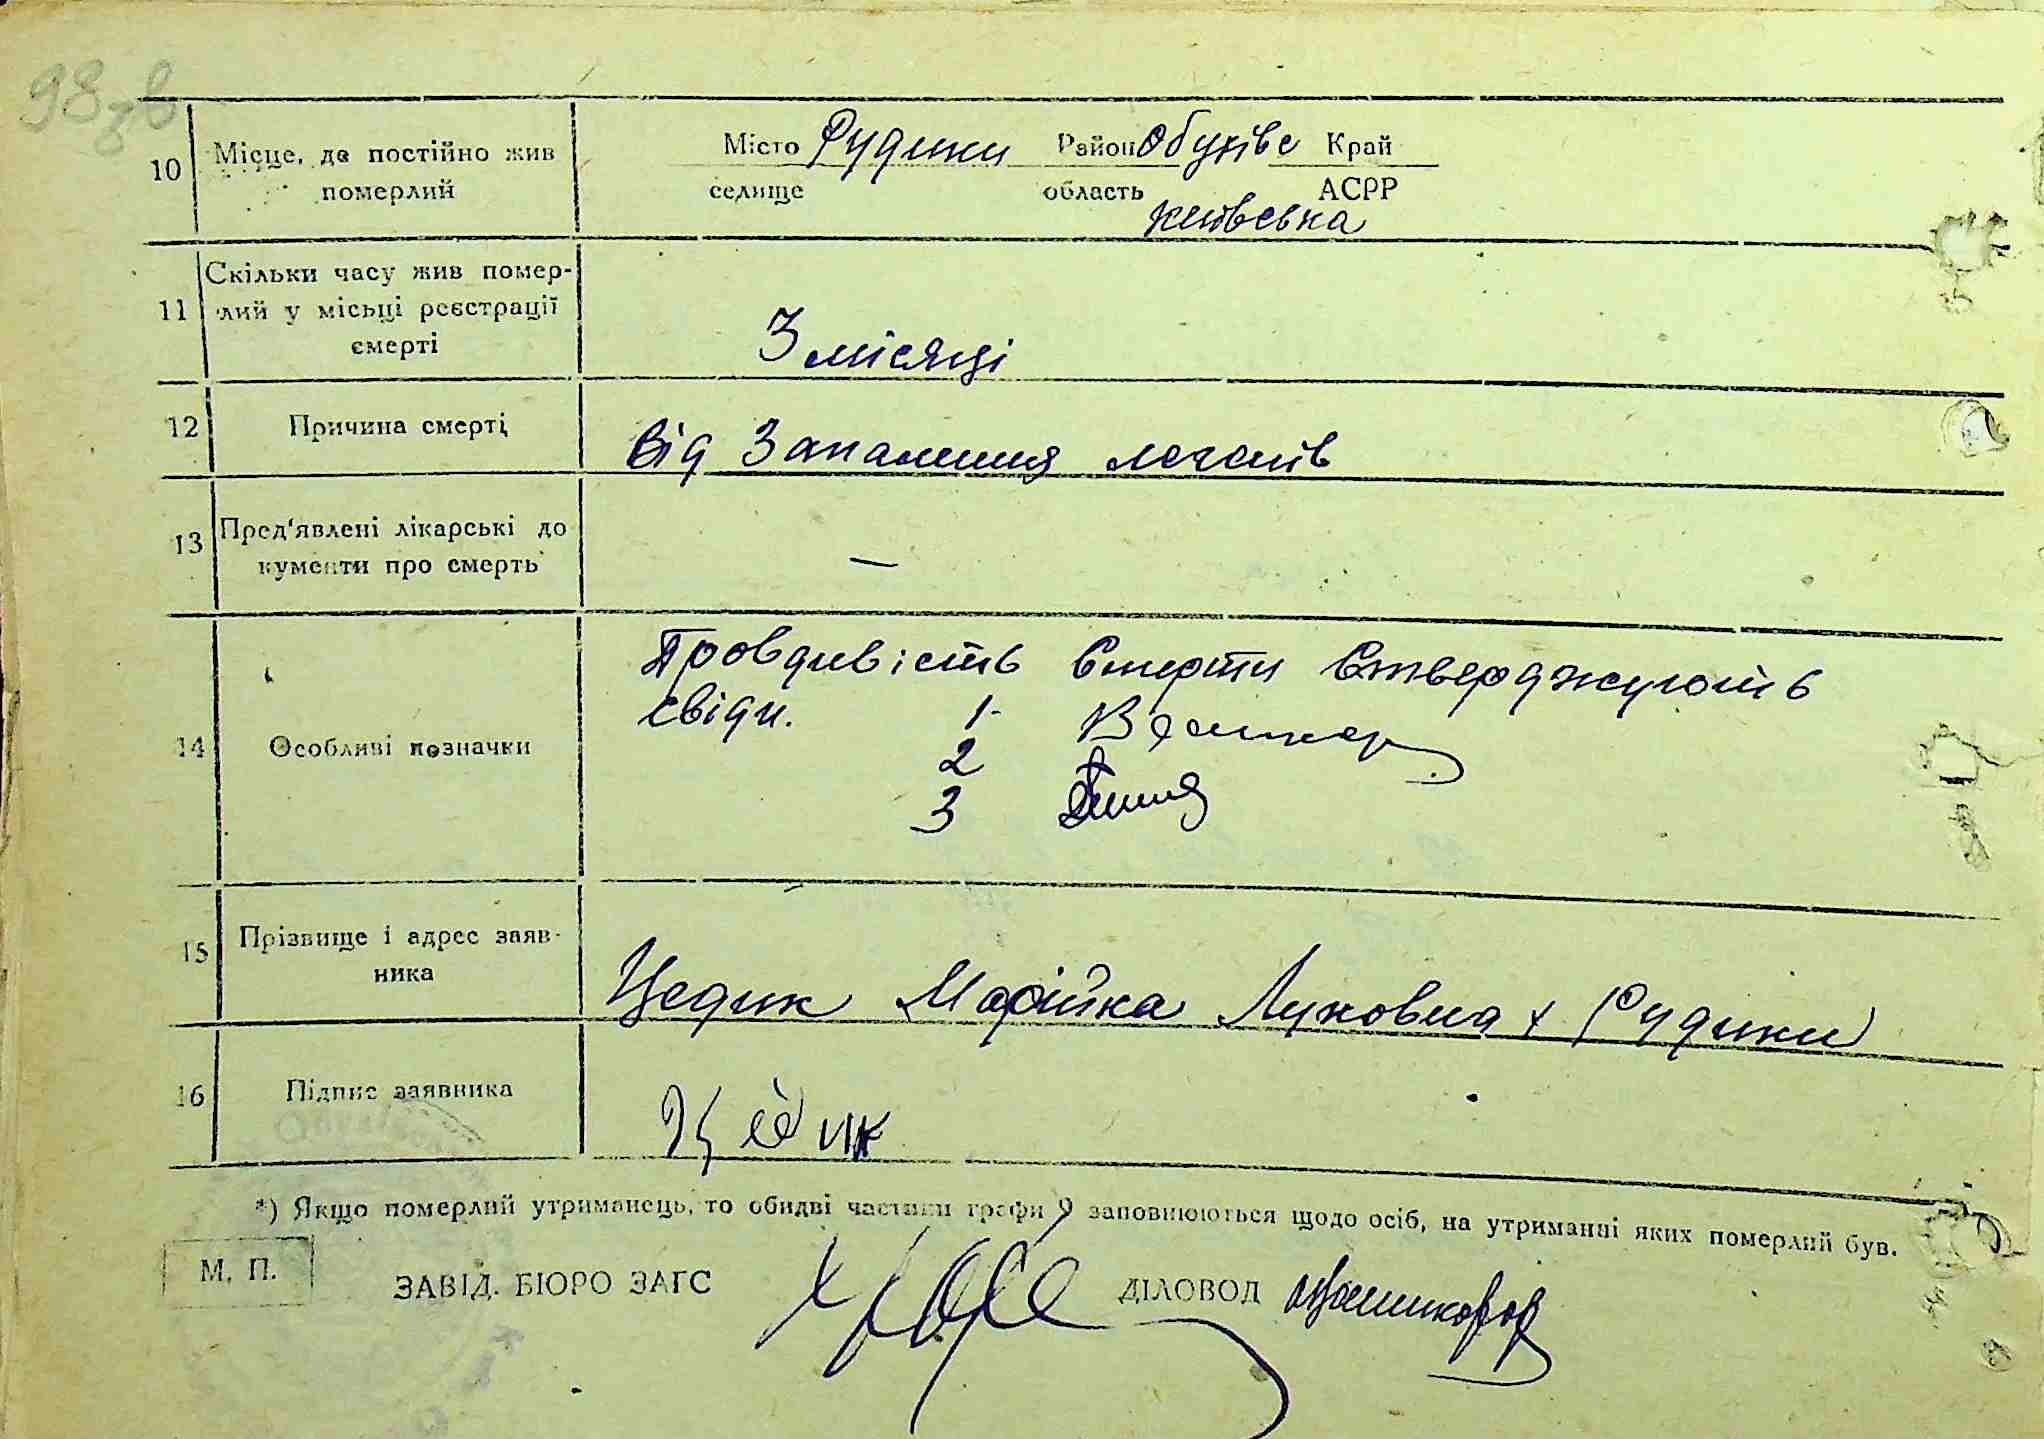 98зв
10 Місце, де постійно жив померлий Місто Рудики Район Обухівс Край
селище область АСРР
київська
11 Скільки часу жив помер-
лий у місьці реєстрації
смерті
3 місяці
12 Причина смерті Від Запалення легенів
13 Пред'явлені лікарські до
кументи про смерть —
14 Особливі позначки
Провдивість Смерти Стверджують
свідн. 1-
2
3
15 Прізвище і адрес заяв-
ника
Цедик Марійка Луковна х Рудики
16 Підпис заявника Цедик
*) Якщо померлий утриманець, то обидві частини графи 9 заповнюються щодо осіб, на утриманні яких померлий був.
М. П. ЗАВІД. БЮРО ЗАГС ДІЛОВОД